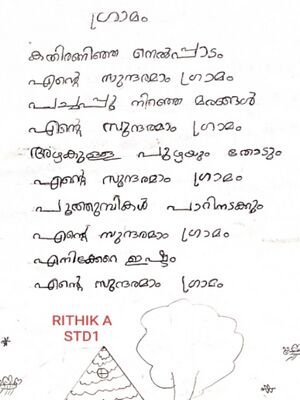 ഗ്രാമം
കതിരണിഞ്ഞ നെൽപ്പാടം
എന്റെ സുന്ദരമാം ഗ്രാമം
പച്ചപ്പു നിറഞ്ഞ മരങ്ങൾ
എന്റെ സുന്ദരമാം ഗ്രാമം
അഴകുള്ള പുഴയും തോടും
എന്റെ സുന്ദരമാം ഗ്രാമം
പൂത്തുമ്പികൾ പാറിനടക്കും
എന്റെ സുന്ദരമാം ഗ്രാമം
എനിക്കേറെ ഇഷ്ടം
എന്റെ സുന്ദരമാം ഗ്രാമം
RITHIK A
STD1